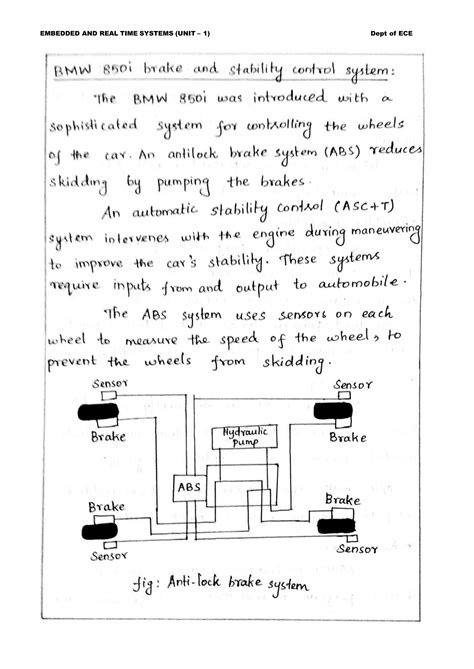 EMBEDDED AND REAL TIME SYSTEMS (UNIT – 1) Dept of ECE
BMW 850i brake and stability control system:
The BMW 850i was introduced with a
sophisticated system for controlling the wheels
of the car. An antilock brake system (ABS) reduces
skidding by pumping the brakes.
An automatic stability control (ASC+T)
system intervenes with the engine during maneuvering
to improve the car's stability. These systems
require inputs from and output to automobile.
The ABS system uses sensors on each
wheel to measure the speed of the wheel, to
prevent the wheels from skidding.
Sensor Sensor
Brake Hydraulic pump Brake
ABS
Brake Brake
Sensor Sensor
fig: Anti-lock brake system